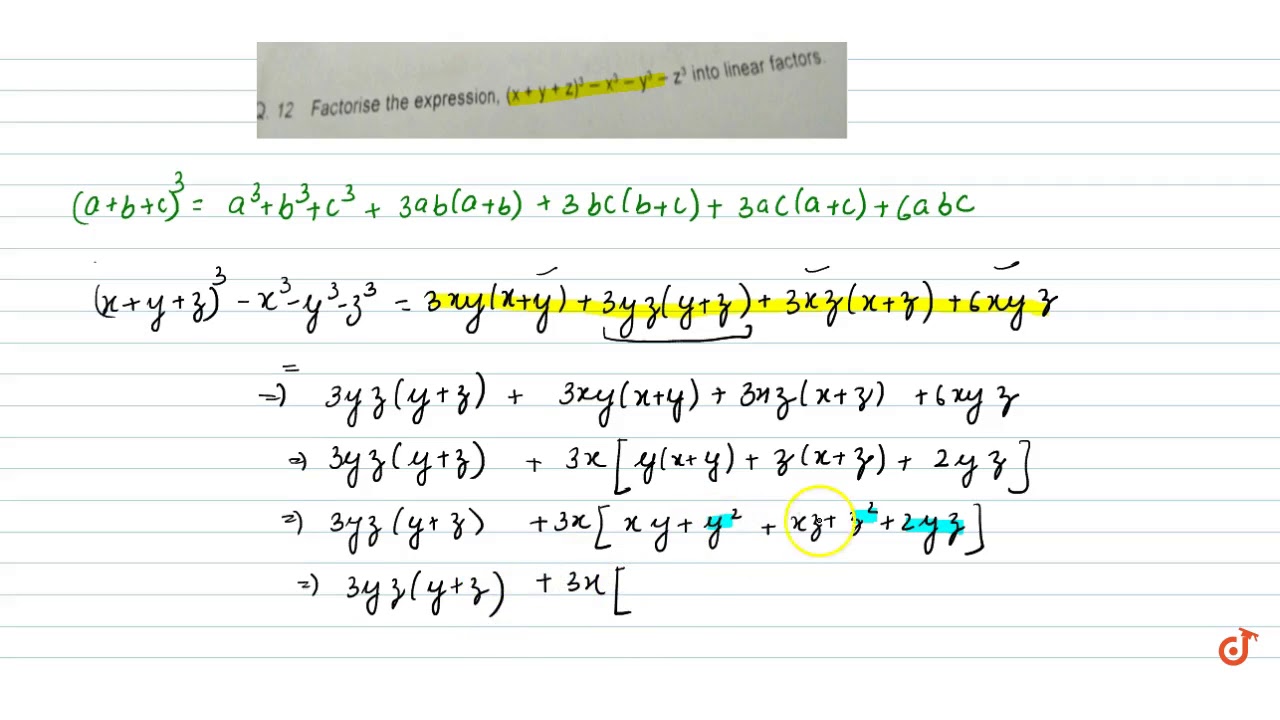 Q. 12 Factorise the expression, (x + y + z)³ – x³ – y³ – z³ into linear factors.
(a+b+c)³ = a³+b³+c³ + 3ab(a+b) + 3bc(b+c) + 3ac(a+c) + 6abc
(x+y+z)³ -x³-y³-z³ = 3xy(x+y) + 3yz(y+z) + 3xz(x+z) + 6xyz
=
=) 3yz(y+z) + 3xy(x+y) + 3xz(x+z) + 6xyz
=) 3yz(y+z) + 3x[y(x+y) + z(x+z) + 2yz]
=) 3yz(y+z) +3x[xy + y² + xz + z² + 2yz]
=) 3yz(y+z) + 3x[